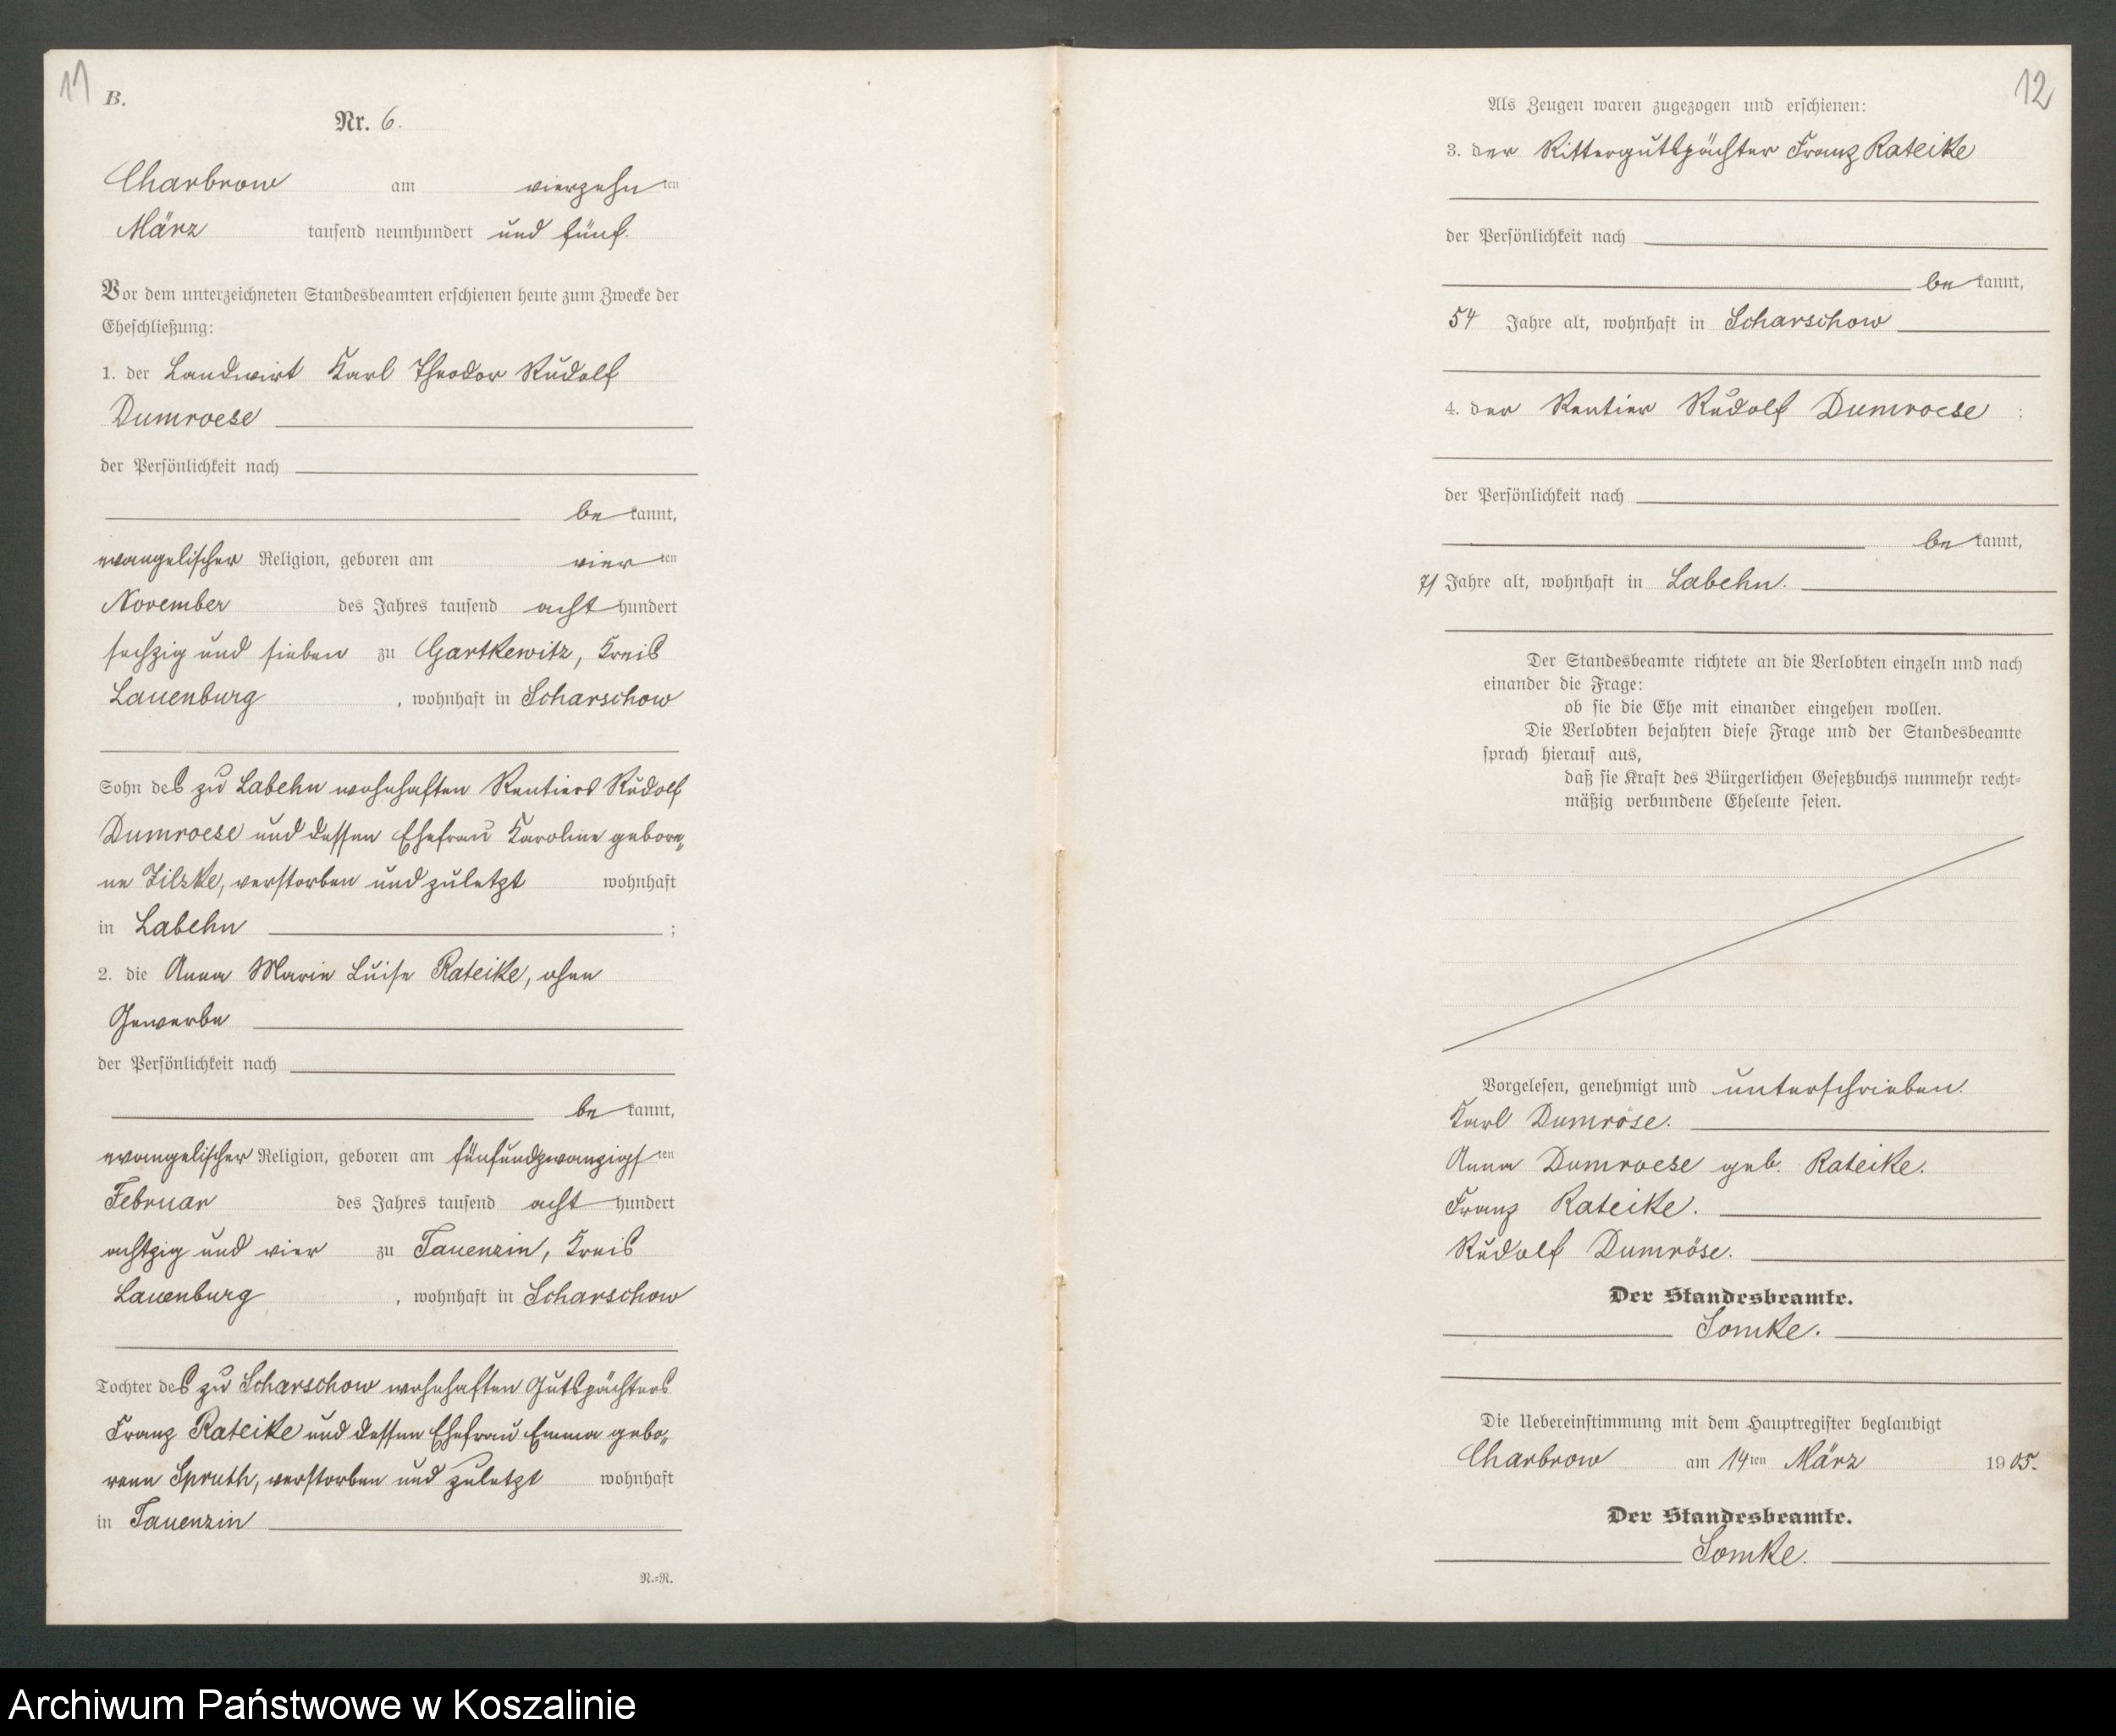 11
B.
Nr. 6.
Charbrow am vierzehn ten
März tausend neunhundert und fünf.
Vor dem unterzeichneten Standesbeamten erschienen heute zum Zwecke der
Eheschließung:
1. der Landwirt Karl Theodor Rudolf
Dumroese
der Persönlichkeit nach
be kannt,
evangelischer Religion, geboren am vier ten
November des Jahres tausend acht hundert
sechzig und sieben zu Gartkewitz, Kreis
Lauenburg, wohnhaft in Scharschow
Sohn des zu Labehn wohnhaften Rentiers Rudolf
Dumroese und dessen Ehefrau Karoline gebore„
ne Zilske, verstorben und zuletzt wohnhaft
in Labehn ;
2. die Anna Marie Luise Rateike, ohne
Gewerbe
der Persönlichkeit nach
be kannt,
evangelischer Religion, geboren am fünfundzwanzigs ten
Februar des Jahres tausend acht hundert
achtzig und vier zu Tauenzin, Kreis
Lauenburg, wohnhaft in Scharschow
Tochter des zu Scharschow wohnhaften Gutspächters
Franz Rateike und dessen Ehefrau Emma gebo„
rene Spruth, verstorben und zuletzt wohnhaft
in Tauenzin
N.=R.
12
Als Zeugen waren zugezogen und erschienen:
3. der Rittergutspächter Franz Rateike
der Persönlichkeit nach
be kannt,
54 Jahre alt, wohnhaft in Scharschow
4. der Rentier Rudolf Dumroese ;
der Persönlichkeit nach
be kannt,
71 Jahre alt, wohnhaft in Labehn.
Der Standesbeamte richtete an die Verlobten einzeln und nach
einander die Frage:
ob sie die Ehe mit einander eingehen wollen.
Die Verlobten bejahten diese Frage und der Standesbeamte
sprach hierauf aus,
daß sie Kraft des Bürgerlichen Gesetzbuchs nunmehr recht=
mäßig verbundene Eheleute seien.
Vorgelesen, genehmigt und unterschrieben.
Karl Dumröse.
Anna Dumroese geb. Rateike.
Franz Rateike.
Rudolf Dumröse.
Der Standesbeamte.
Somke.
Die Uebereinstimmung mit dem Hauptregister beglaubigt
Charbrow am 14ten März 1905.
Der Standesbeamte.
Somke.
Archiwum Państwowe w Koszalinie